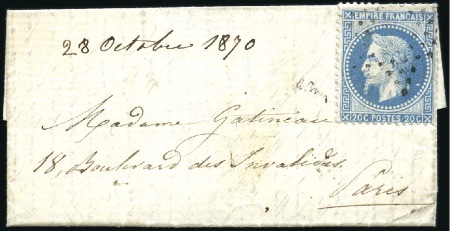 28 Octobre 1870
EMPIRE FRANCAIS
20C POSTES 20C
Madame Gatineau
18, Boulevard des Invalides
Paris